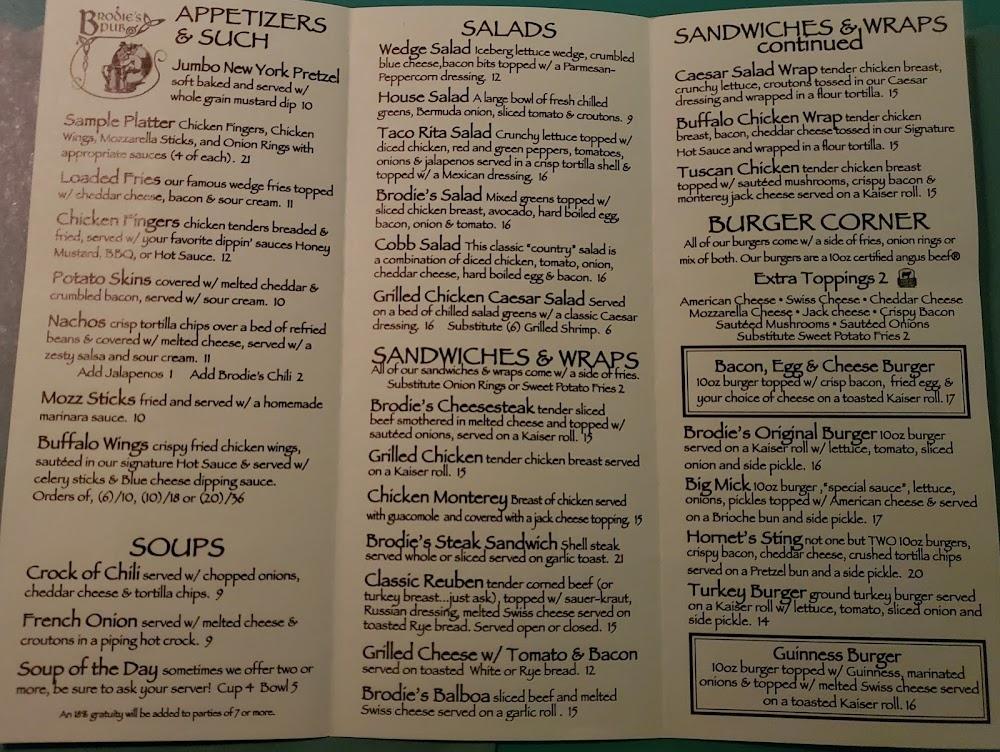 BRODIE'S
PUB
APPETIZERS
& SUCH
Jumbo New York Pretzel
soft baked and served w/
whole grain mustard dip 10
Sample Platter Chicken Fingers, Chicken
Wings, Mozzarella Sticks, and Onion Rings with
appropriate sauces (4 of each). 21
Loaded Fries our famous wedge fries topped
w/ cheddar cheese, bacon & sour cream. 11
Chicken Fingers chicken tenders breaded &
fried, served w/ your favorite dippin' sauces Honey
Mustard, BBQ, or Hot Sauce. 12
Potato Skins covered w/ melted cheddar &
crumbled bacon, served w/ sour cream. 10
Nachos crisp tortilla chips over a bed of refried
beans & covered w/ melted cheese, served w/ a
zesty salsa and sour cream. 11
Add Jalapenos 1 Add Brodie's Chili 2
Mozz Sticks fried and served w/ a homemade
marinara sauce. 10
Buffalo Wings crispy fried chicken wings,
sautéed in our signature Hot Sauce & served w/
celery sticks & Blue cheese dipping sauce.
Orders of, (6)/10, (10)/18 or (20)/36
SOUPS
Crock of Chili served w/ chopped onions,
cheddar cheese & tortilla chips. 9
French Onion served w/ melted cheese &
croutons in a piping hot crock. 9
Soup of the Day sometimes we offer two or
more, be sure to ask your server! Cup 4 Bowl 5
An 18% gratuity will be added to parties of 7 or more.
SALADS
Wedge Salad Iceberg lettuce wedge, crumbled
blue cheese,bacon bits topped w/ a Parmesan-
Peppercorn dressing. 12
House Salad A large bowl of fresh chilled
greens, Bermuda onion, sliced tomato & croutons. 9
Taco Rita Salad Crunchy lettuce topped w/
diced chicken, red and green peppers, tomatoes,
onions & jalapenos served in a crisp tortilla shell &
topped w/ a Mexican dressing. 16
Brodie's Salad Mixed greens topped w/
sliced chicken breast, avocado, hard boiled egg,
bacon, onion & tomato. 16
Cobb Salad This classic "country" salad is
a combination of diced chicken, tomato, onion,
cheddar cheese, hard boiled egg & bacon. 16
Grilled Chicken Caesar Salad Served
on a bed of chilled salad greens w/ a classic Caesar
dressing. 16 Substitute (6) Grilled Shrimp. 6
SANDWICHES & WRAPS
All of our sandwiches & wraps come w/ a side of fries.
Substitute Onion Rings or Sweet Potato Fries 2
Brodie's Cheesesteak tender sliced
beef smothered in melted cheese and topped w/
sautéed onions, served on a Kaiser roll. 15
Grilled Chicken tender chicken breast served
on a Kaiser roll. 15
Chicken Monterey Breast of chicken served
with guacomole and covered with a jack cheese topping. 15
Brodie's Steak Sandwich Shell steak
served whole or sliced served on garlic toast. 21
Classic Reuben tender corned beef (or
turkey breast...just ask), topped w/ sauer-kraut,
Russian dressing, melted Swiss cheese served on
toasted Rye bread. Served open or closed. 15
Grilled Cheese w/ Tomato & Bacon
served on toasted White or Rye bread. 12
Brodie's Balboa sliced beef and melted
Swiss cheese served on a garlic roll . 15
SANDWICHES & WRAPS
continued
Caesar Salad Wrap tender chicken breast,
crunchy lettuce, croutons tossed in our Caesar
dressing and wrapped in a flour tortilla. 15
Buffalo Chicken Wrap tender chicken
breast, bacon, cheddar cheese tossed in our Signature
Hot Sauce and wrapped in a flour tortilla. 15
Tuscan Chicken tender chicken breast
topped w/ sautéed mushrooms, crispy bacon &
monterey jack cheese served on a Kaiser roll. 15
BURGER CORNER
All of our burgers come w/ a side of fries, onion rings or
mix of both. Our burgers are a 10oz certified angus beef®
Extra Toppings 2
American Cheese • Swiss Cheese • Cheddar Cheese
Mozzarella Cheese • Jack cheese • Crispy Bacon
Sautéed Mushrooms • Sautéed Onions
Substitute Sweet Potato Fries 2
Bacon, Egg & Cheese Burger
10oz burger topped w/ crisp bacon, fried egg, &
your choice of cheese on a toasted Kaiser roll. 17
Brodie's Original Burger 10oz burger
served on a Kaiser roll w/ lettuce, tomato, sliced
onion and side pickle. 16
Big Mick 10oz burger ,"special sauce", lettuce,
onions, pickles topped w/ American cheese & served
on a Brioche bun and side pickle. 17
Hornet's Sting not one but TWO 10oz burgers,
crispy bacon, cheddar cheese, crushed tortilla chips
served on a Pretzel bun and a side pickle. 20
Turkey Burger ground turkey burger served
on a Kaiser roll w/ lettuce, tomato, sliced onion and
side pickle. 14
Guinness Burger
10oz burger topped w/ Guinness, marinated
onions & topped w/ melted Swiss cheese served
on a toasted Kaiser roll. 16